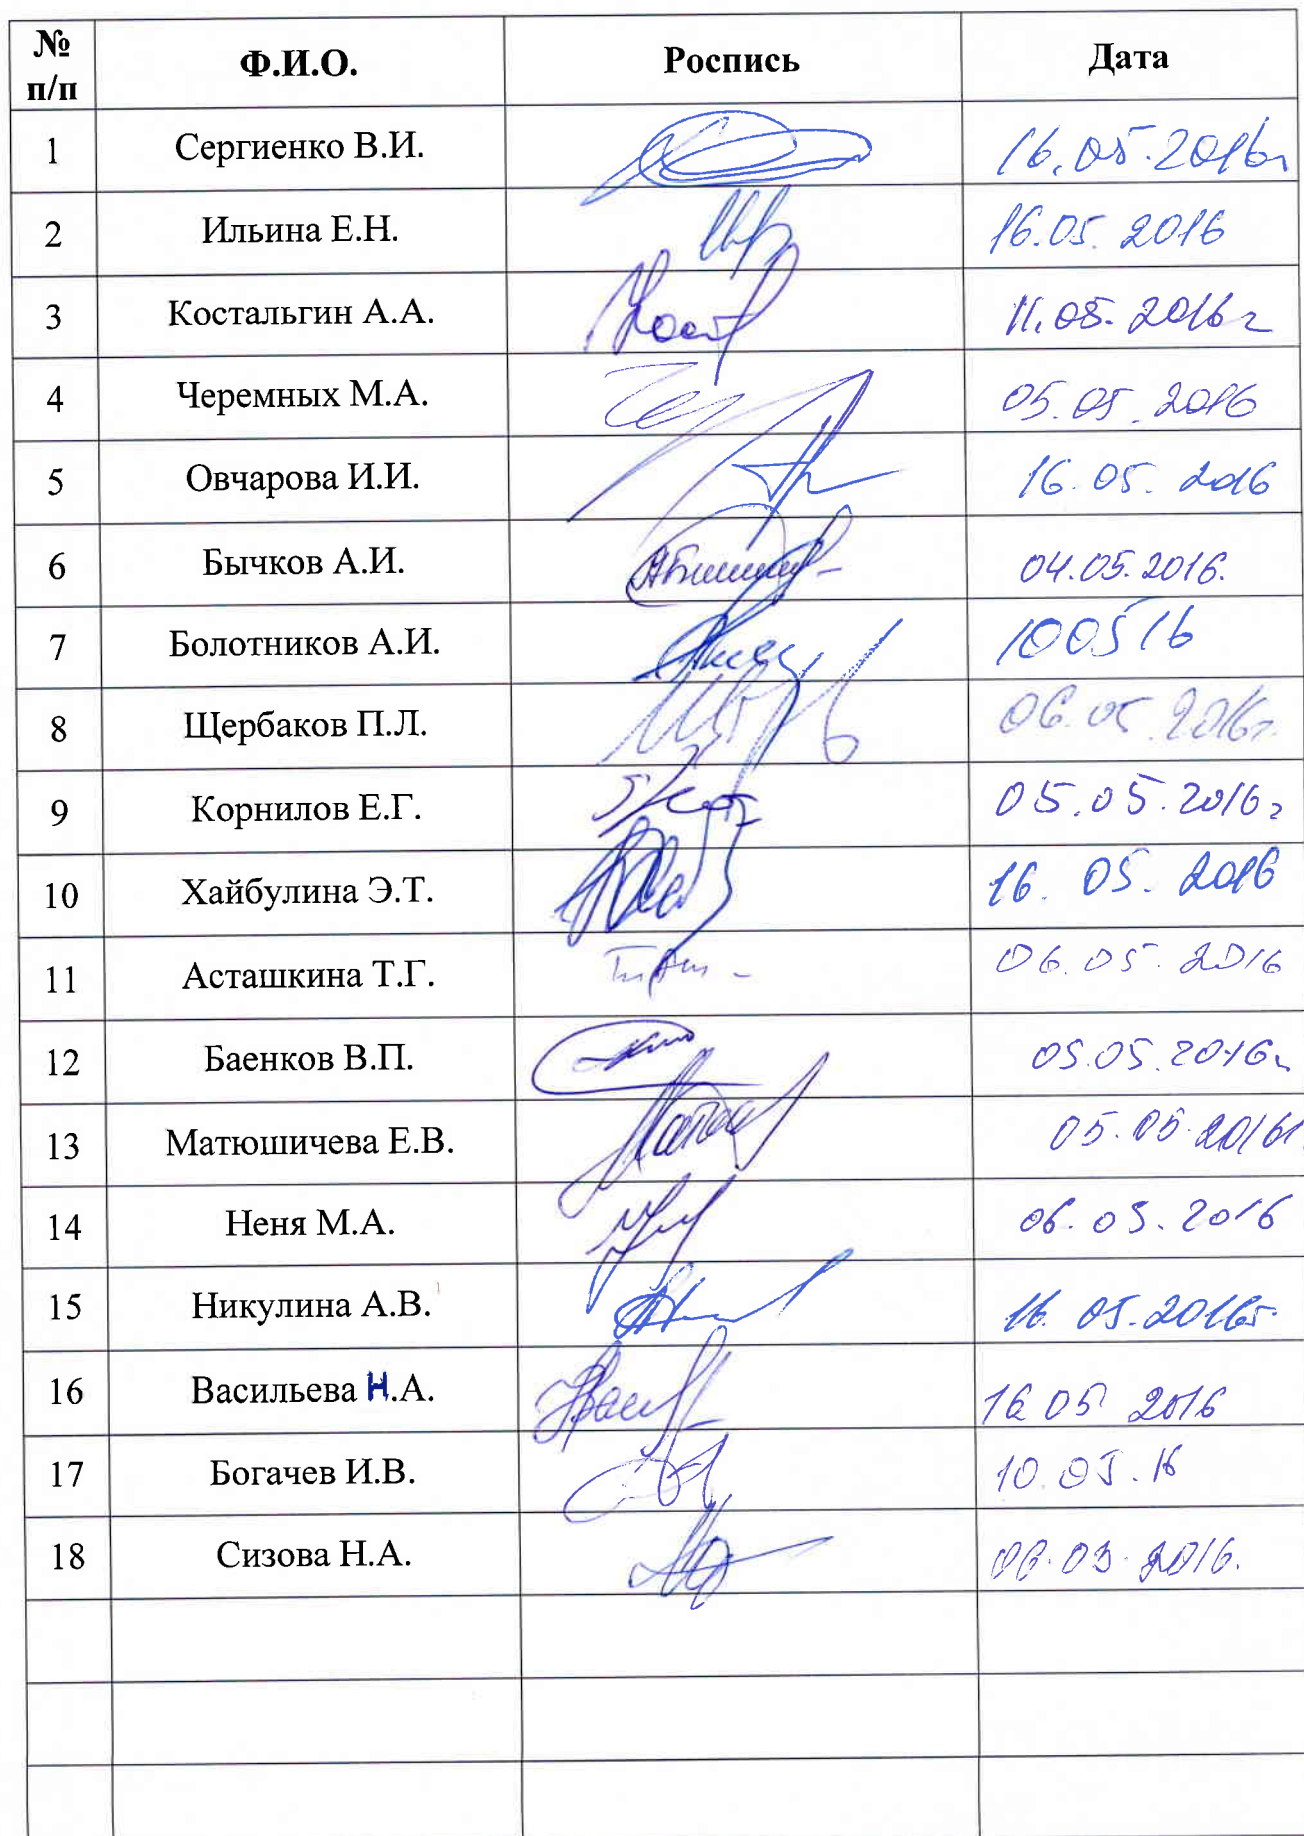 № п/п Ф.И.О. Роспись Дата
1 Сергиенко В.И. 16.05.2016г
2 Ильина Е.Н. 16.05.2016
3 Костальгин А.А. 11.05.2016 г
4 Черемных М.А. 05.05.2016
5 Овчарова И.И. 16.05.2016
6 Бычков А.И. 04.05.2016.
7 Болотников А.И. 100516
8 Щербаков П.Л. 06.05.2016г.
9 Корнилов Е.Г. 05.05.2016г
10 Хайбулина Э.Т. 16.05.2016
11 Асташкина Т.Г. 06.05.2016
12 Баенков В.П. 05.05.2016г
13 Матюшичева Е.В. 05.05.2016г
14 Неня М.А. 06.05.2016
15 Никулина А.В. 16.05.2016г.
16 Васильева Н.А. 16 05 2016
17 Богачев И.В. 10.05.16
18 Сизова Н.А.